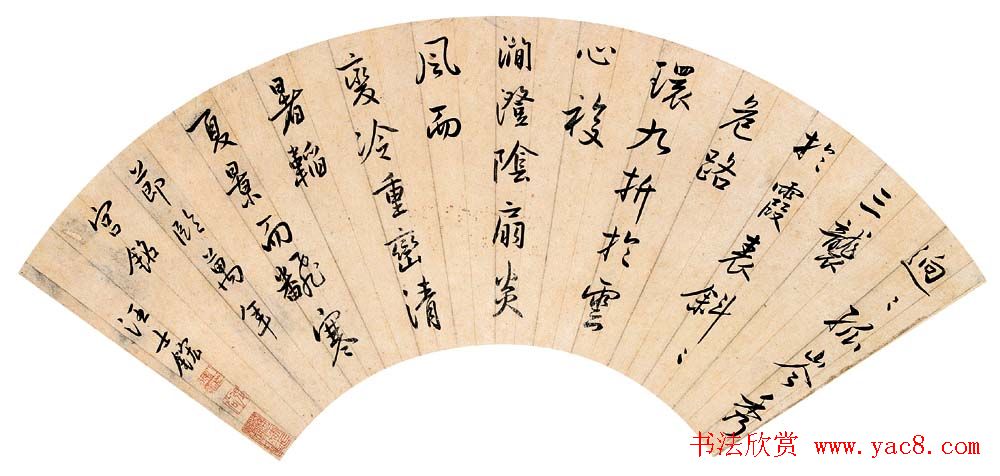 逈〻孤岑秀
三襲
於霞表斜〻
危路
環九折於雲
心複
澗澄陰扇炎
風而
變冷重巒清
暑韜
夏景而飜寒
節臨萬年
宮銘 汪士鋐
书法欣赏 www.yac8.com